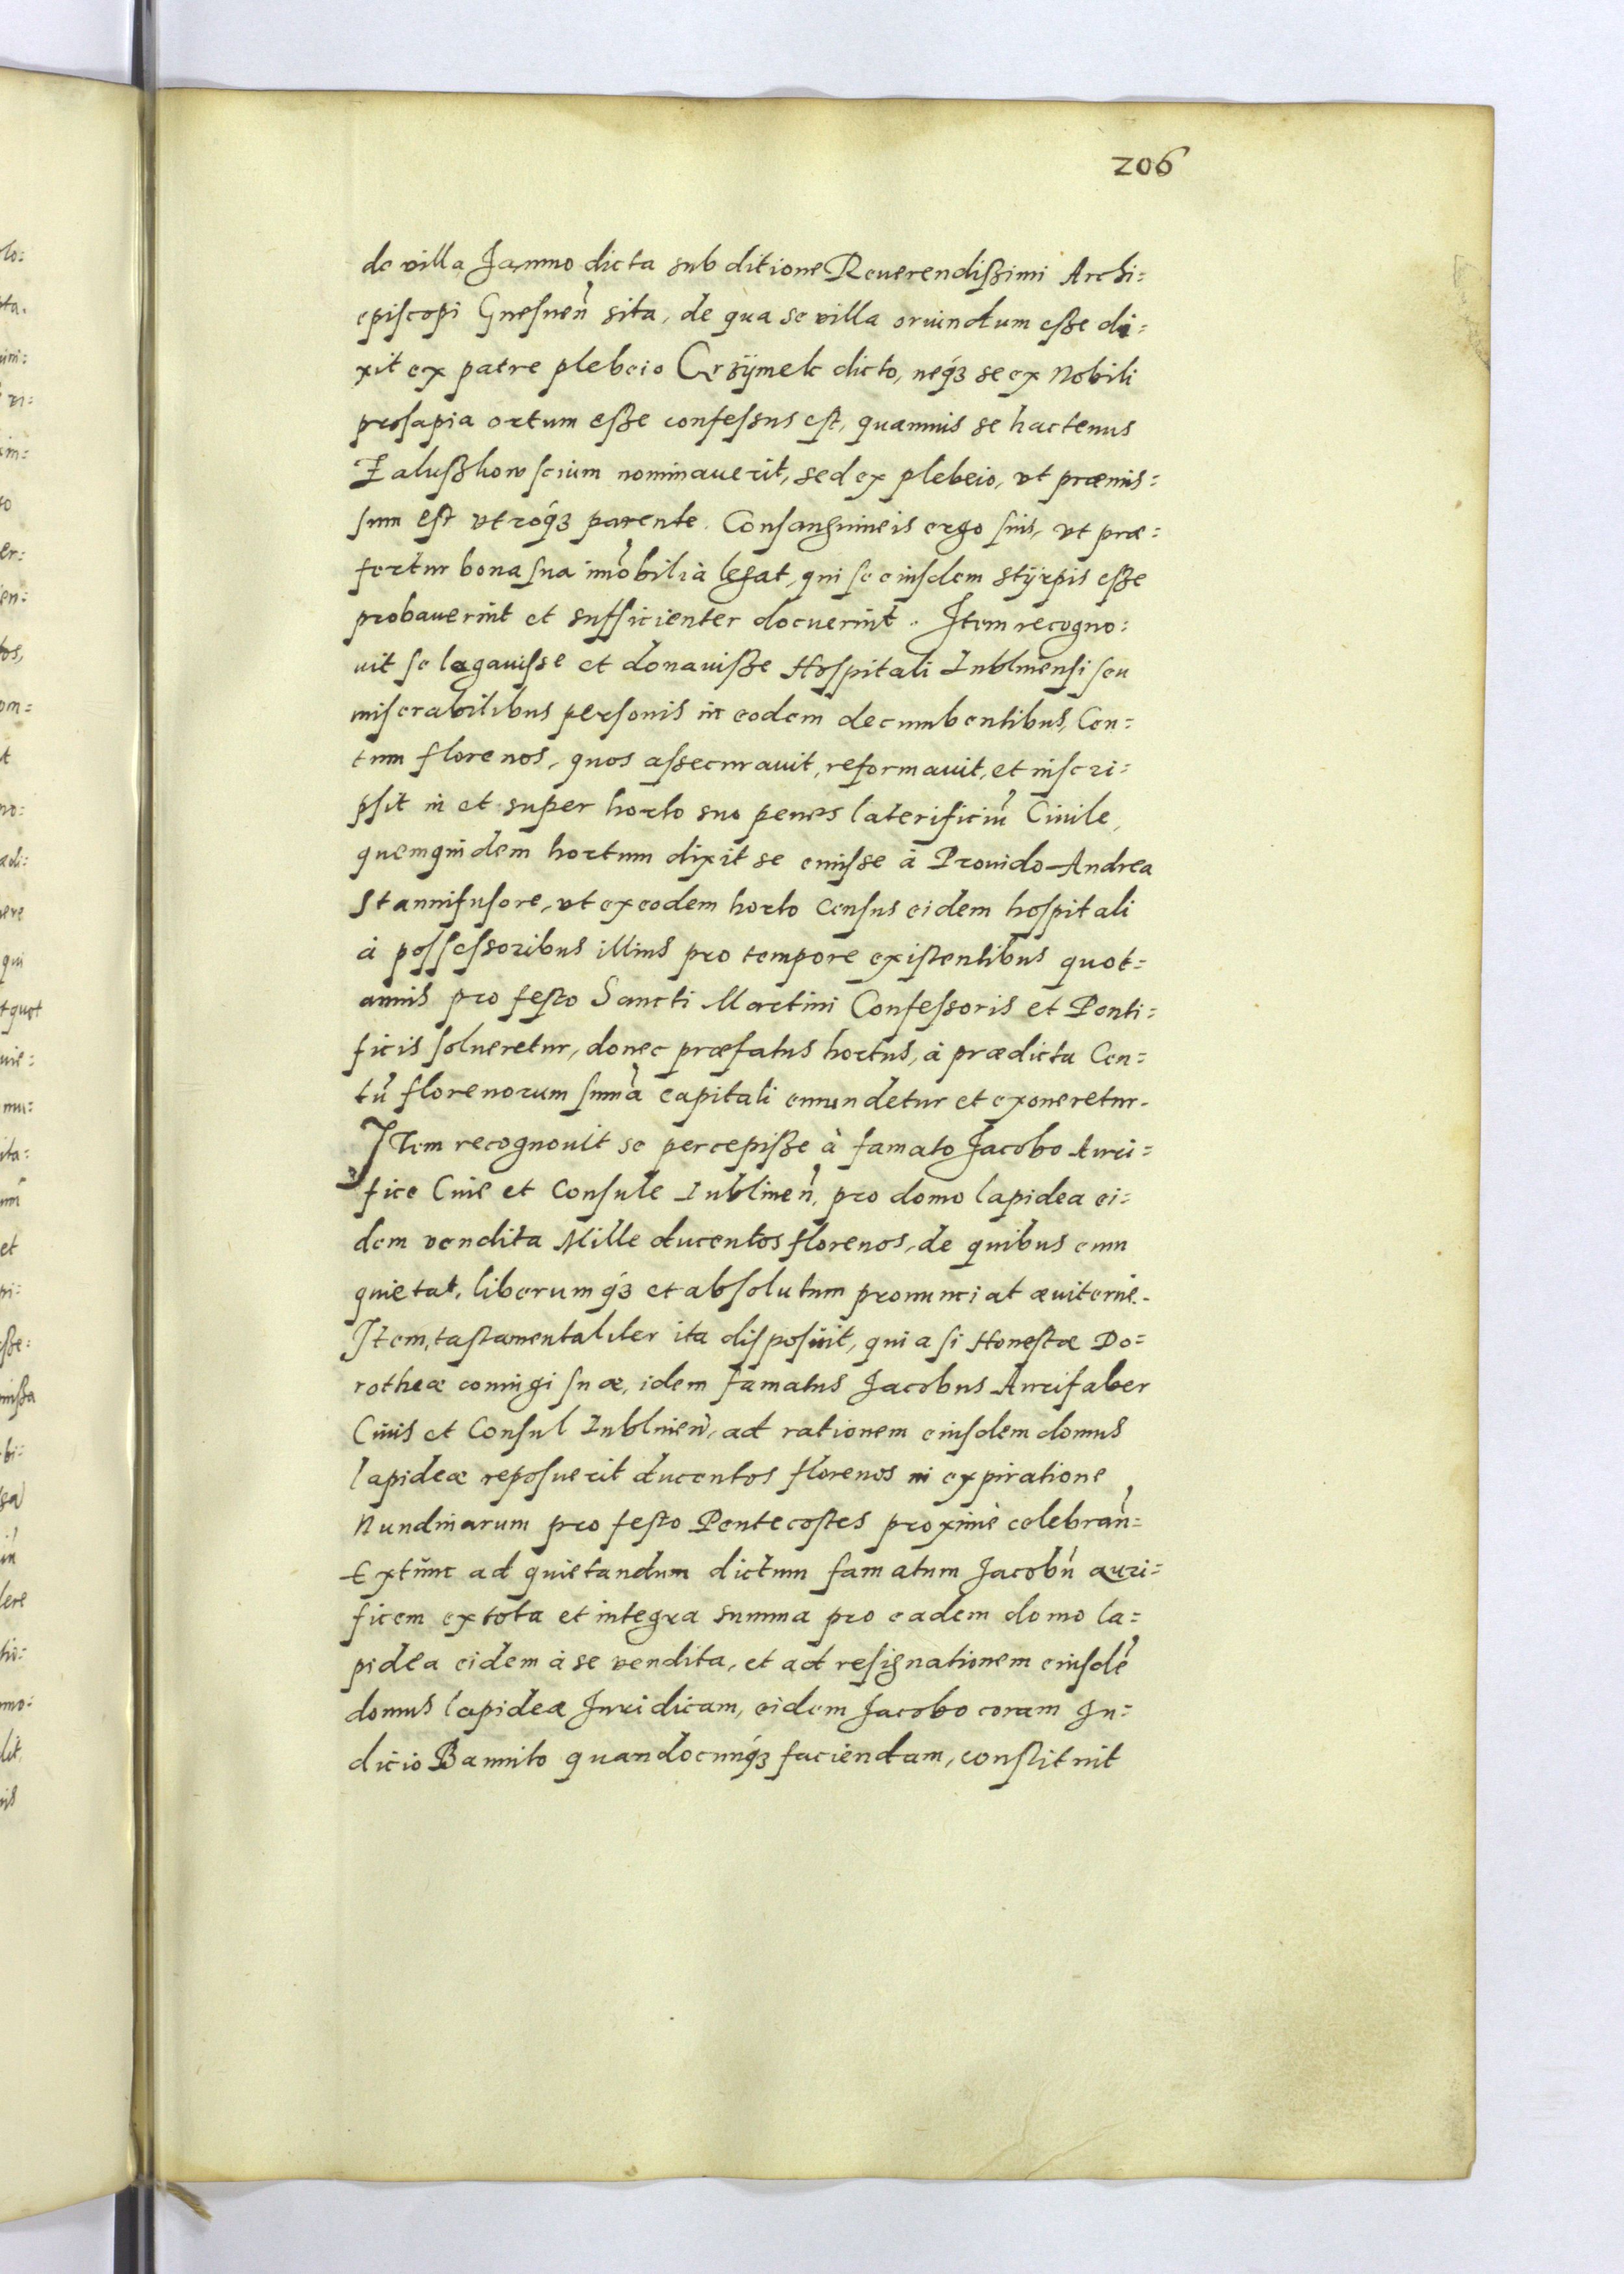 206
de villa Jamno dicta sub ditione Reuerendißimi Archi=
episcopi Gnesnen̄ sita, de qua se villa oriundum eße di=
xit ex patre plebeio Crzÿmek dicto, neq́ꝫ se ex Nobili
prosapia ortum eße confessus est, quamuis se hactenus
Zalußkowscium nominauerit, sed ex plebeio, vt præmis=
sum est vtroq́ꝫ parente. Consanguineis ergo suis, vt præ=
fertur bona sua im̄obilia legat, qui se eiusdem stÿrpis eße
probauerint et sufficienter docuerint. Item recogno:
uit se legauisse et donauiße Hospitali Lublinensi seu
miserabilibus personis in eodem decumbentibus, Cen=
tum florenos, quos assecurauit, reformauit, et inscri=
psit in et super horto suo penes laterificiū Ciuile,
quemquidem hortum dixit se emisse à Prouido Andrea
Stannifusore, vt ex eodem horto census eidem hospitali
à possessoribus illius pro tempore existentibus quot=
annis pro festo Sancti Martini Confessoris et Ponti=
ficis solueretur, donec præfatus hortus, à prædicta Cen=
tū florenorum sum̄a capitali emundetur et exoneretur.
Item recognouit se percepiße à famato Jacobo Auri=
fice Ciue et Consule Lublinen̄, pro domo lapidea ei=
dem vendita Mille ducentos florenos, de quibus eum
quietat, liberumq́ꝫ et absolutum pronunciat æuiterne.
Item, tastamentaliter ita disposuit, quia si Honestæ Do=
rotheæ coniugi suæ, idem famatus Jacobus Aurifaber
Ciuis et Consul Lublinen̄, ad rationem eiusdem domus
lapideæ reposuerit ducentos florenos in expiratione
Nundinarum pro festo Pentecostes proximè celebran̄=
Extunc ad quietandum dictum famatum Jacobū auri=
ficem ex tota et integra summa pro eadem domo la=
pidea eidem à se vendita, et ad resignationem eiusdē
domus lapideæ Juridicam, eidem Jacobo coram Ju=
dicio Bannito quandocunq́ꝫ faciendam, constituit